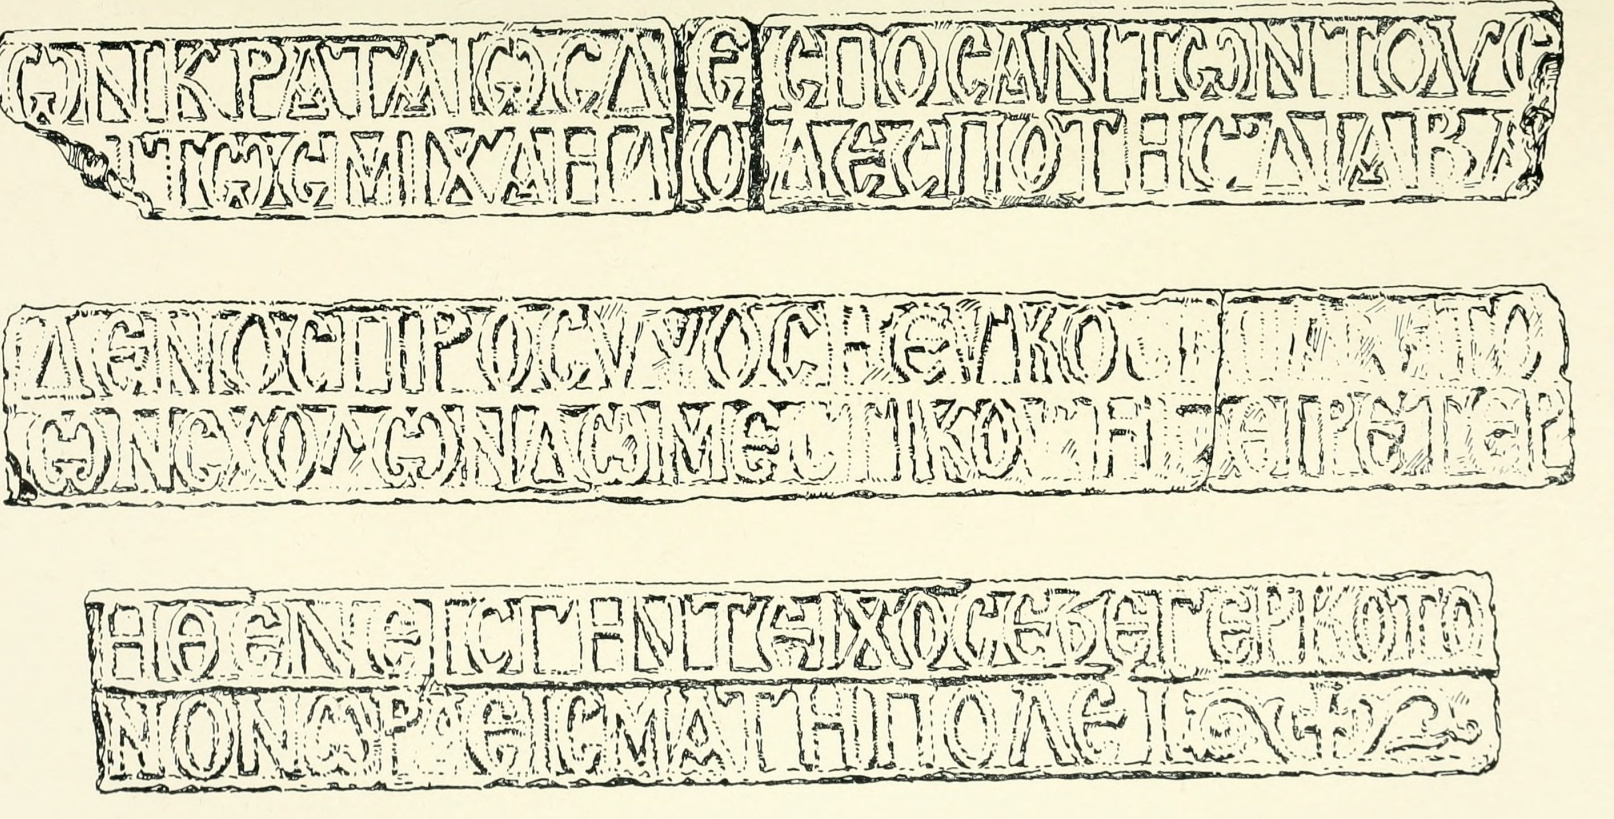 ΩΝΚΡΑΤΑΙΩϹΔΕϹΠΟϹΑΝΤΩΝΤΟΥϹ
ΠΤΩϹΜΙΧΑΗΛΟΔΕϹΠΟΤΗϹΔΙΑΒΑ
ΔΕΝΟϹΠΡΟϹΥΨΟϹΗΕΥΚΟϹΜΙΑΝΤΟ
ΩΝϹΧΟΛΩΝΔΩΜΕϹΤΙΚΟΥΗΓΕΙΡΕΤΕΡ
ΗΘΕΝΕΙϹΓΗΝΤΕΙΧΟϹΕΞΕΓΕΡΚΟΤΟ
ΝΟΝΩΡΑΕΙϹΜΑΤΗΠΟΛΕΙ